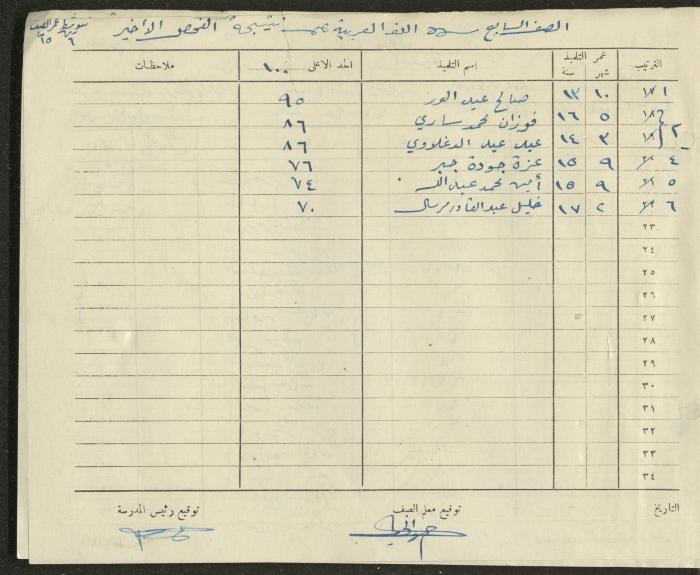 الصف السابع اللغة العربية نتيجة الفحص الأخير
متوسط عمر الصف
٦ ١٥
الترتيب عمر التلميذ اسم التلميذ الحد الاعلى ١٠٠ ملاحظات
شهر سنة
١ ١٠ ١٣ صالح عيد ٩٥
٢ ٥ ١٦ فوزان محمد ساري ٨٦
٢ ٣ ١٤ عيد عيد الدغلاوي ٨٦
٤ ٩ ١٥ عزة جودة جبر ٧٦
٥ ٩ ١٥ أمين محمد عبدالله ٧٤
٦ ٢ ١٧ خليل عبدالقادر مرسال ٧٠
٢٣
٢٤
٢٥
٢٦
٢٧
٢٨
٢٩
٣٠
٣١
٣٢
٣٣
٣٤
التاريخ توقيع معلم الصف توقيع رئيس المدرسة